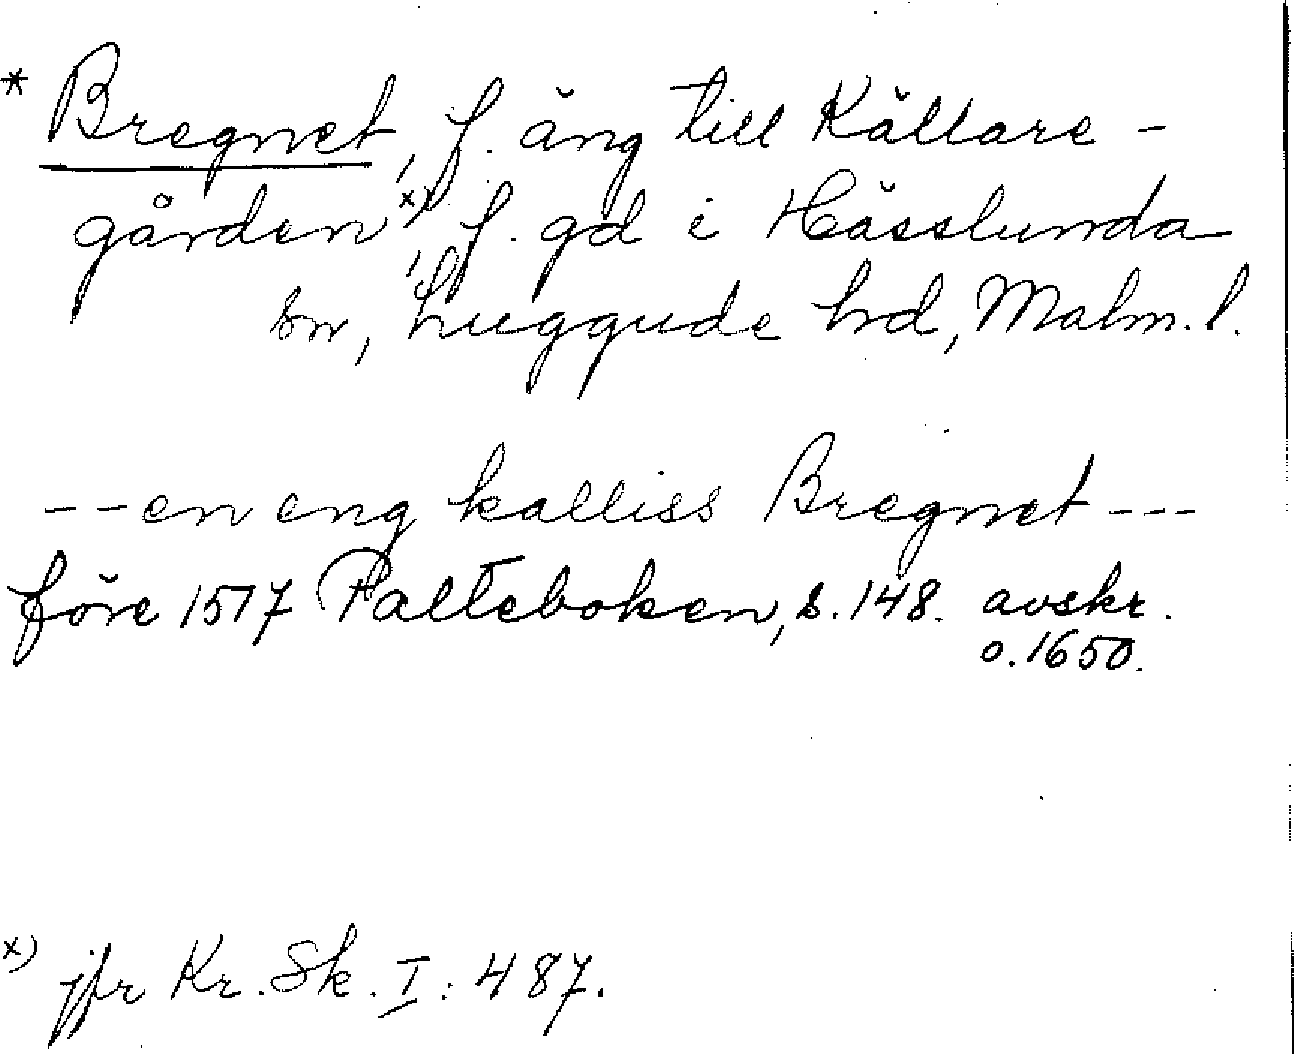 * Bregnet, f. äng till Källare-
gården x), f. gd i Hässlunda
sn, Luggude hd, Malm. l.
--en eng kalliss Bregnet---
före 1517 Palteboken, s. 148. avskr.
o. 1650.
x) jfr Kr. Sk. I: 487.